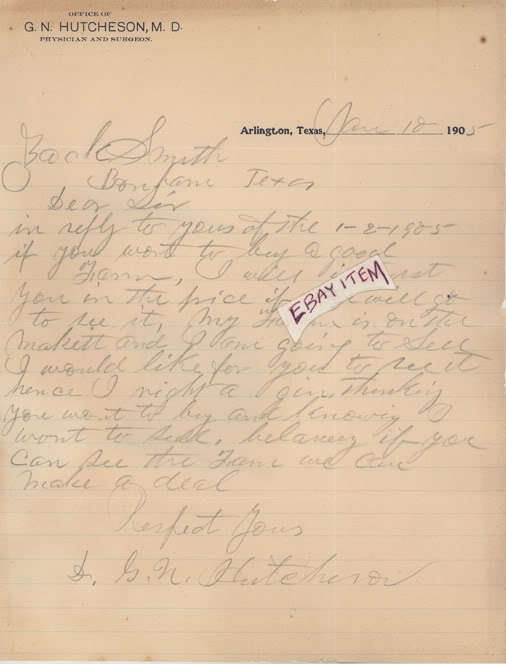 OFFICE OF
G. N. HUTCHESON, M. D.
PHYSICIAN AND SURGEON.
Arlington, Texas, Jan 10 1905
Zack Smith
Bonham Texas
Dear Sir
in reply to yours of the 1-2-1905
if you wont to buy a good
Farm, I will
you in the price if will go
EBAY ITEM
to see it, my Farm is on the
markett and I am going to Sell
I would like for you to see it
hence I right a gin thinking
you wont to by and knowing I
wont to sell, belaving if you
Can see the Farm we can
make a deal
Respect Yours
Dr. G. N. Hutcheson